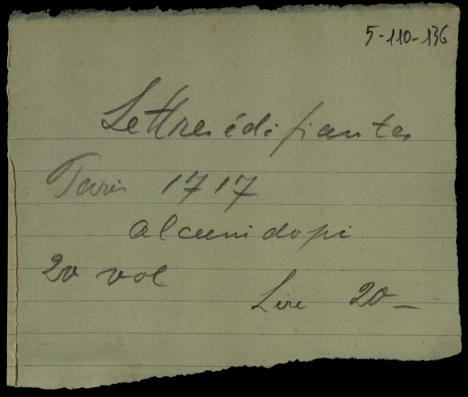 5-110-136
Lettres édifiantes
Paris 1717
alcuni dopi
20 vol
Lire 20-